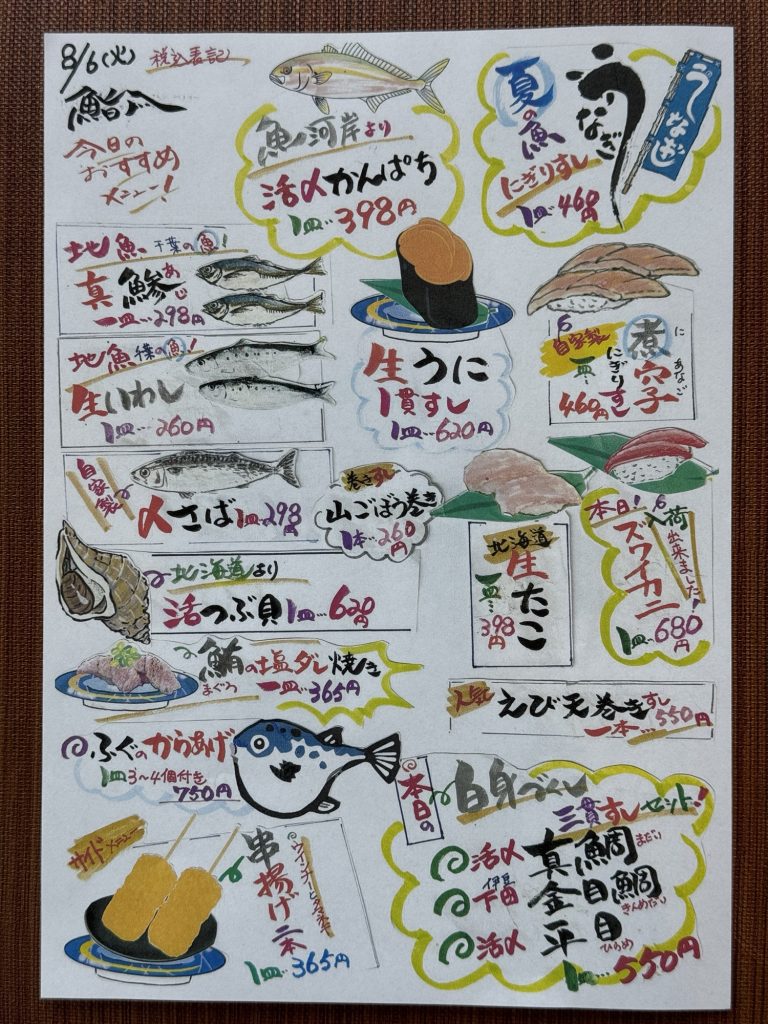 8/6(火) 税込表記
今日の
おすすめ
メニュー!
魚河岸より
活〆かんぱち
1皿…398円
夏の魚
うなぎ
にぎりずし
1皿…460円
うなぎ
地魚 千葉の魚!
真鯵 あじ
一皿…298円
地魚 千葉の魚!
生いわし
1皿…260円
生うに
1貫ずし
1皿…620円
自家製
煮穴子
に あなご
にぎりずし
一皿…460円
自家製
〆さば 1皿…298円
巻きずし
山ごぼう巻き
1本…260円
北海道
生たこ
一皿…398円
本日!
入荷出来ました!
ズワイカニ
1皿…680円
北海道より
活つぶ貝 1皿…620円
鮪の塩ダレ焼き
まぐろ 一皿…365円
人気 えび天巻きずし
一本…550円
ふぐのからあげ
1皿3〜4個付き
750円
本日の
白身づくし
三貫ずしセット!
活〆 真鯛 まだい
伊豆
下田 金目鯛 きんめだい
活〆 平目 ひらめ
1皿…550円
サイドメニュー
串揚げ二本
1皿…365円